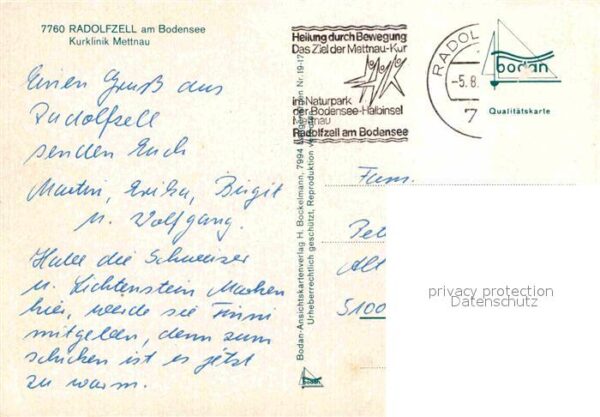 7760 RADOLFZELL am Bodensee
Kurklinik Mettnau
Einen Gruß aus
Radolfzell
senden Euch
Martin, Erika, Birgit
u. Wolfgang.
Habe die Schweizer
u. Lichtenstein Marken
hier, werde sie Finni
mitgeben, denn zum
schicken ist es jetzt
zu warm.
Bodan-Ansichtskartenverlag H. Bockelmann, 7994
Nr. 19-17
Urheberrechtlich geschützt, Reproduktion
bodan
Heilung durch Bewegung
Das Ziel der Mettnau-Kur
im Naturpark
der Bodensee-Halbinsel
Mettnau
Radolfzell am Bodensee
RADOL
-5.8.
7
bodan
Qualitätskarte
Fam.
Pet
All
5100
privacy protection
Datenschutz